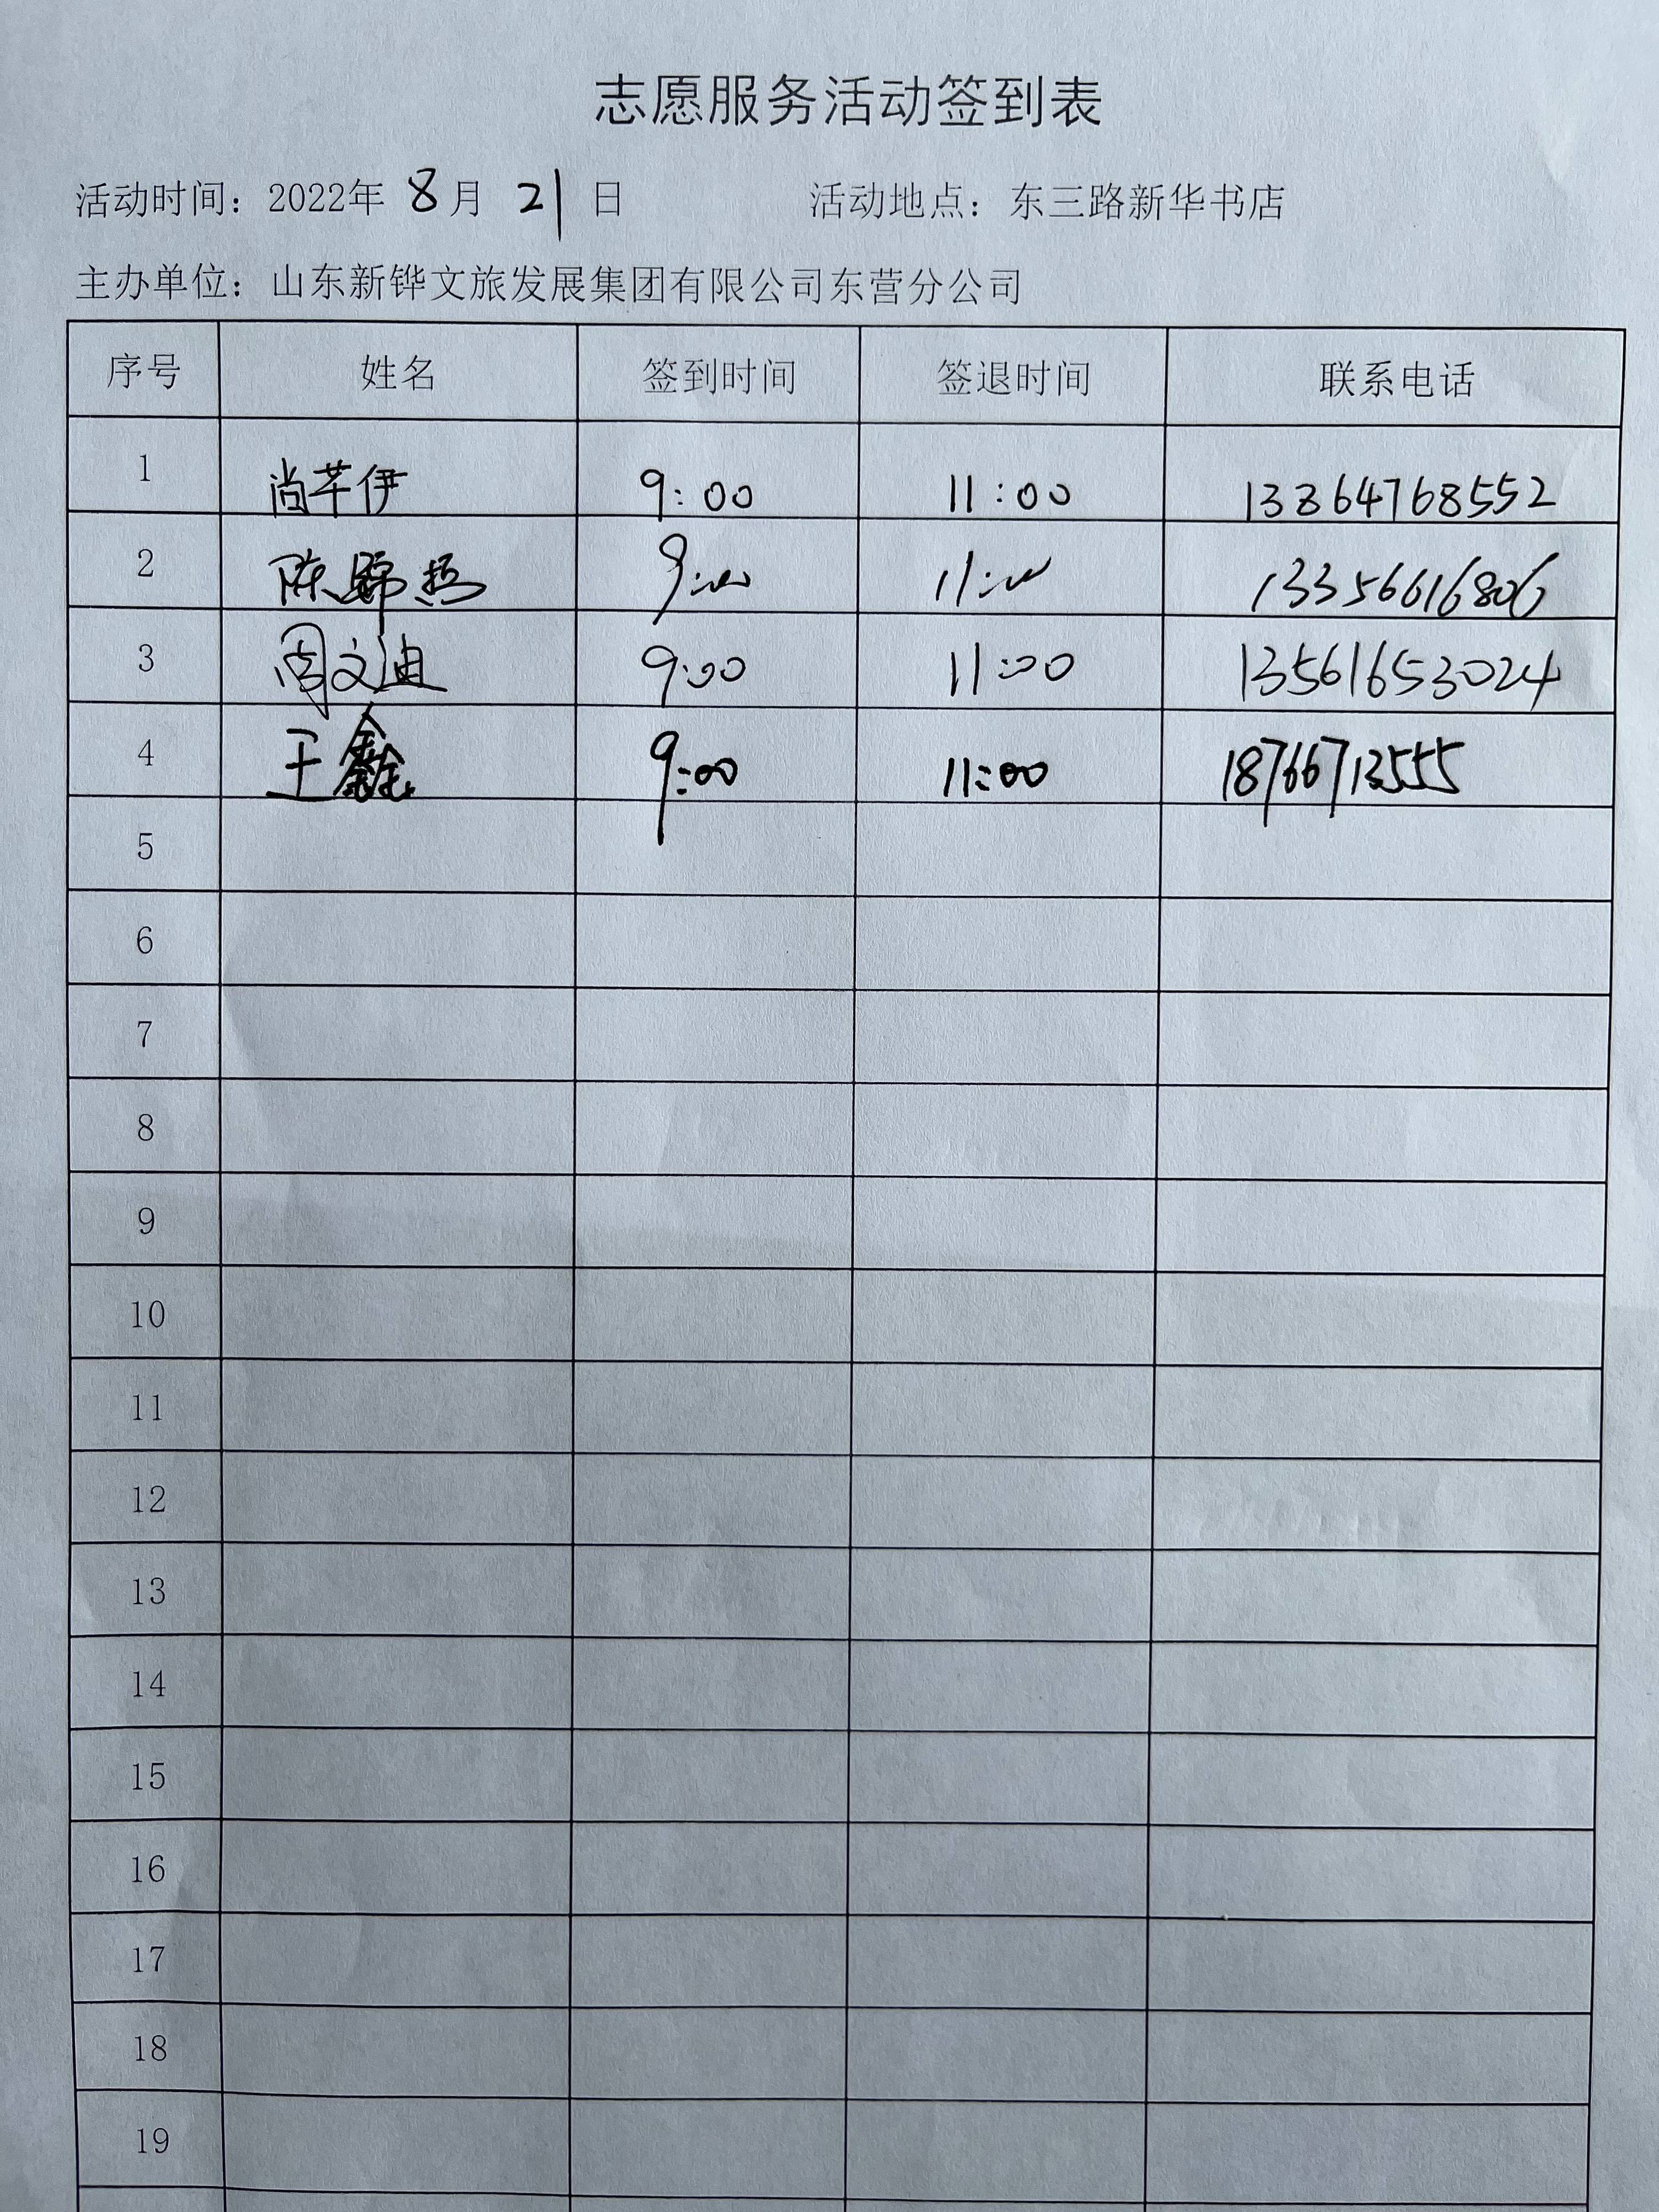 志愿服务活动签到表
活动时间：2022年 8月 21日 活动地点：东三路新华书店
主办单位：山东新铧文旅发展集团有限公司东营分公司
序号 姓名 签到时间 签退时间 联系电话
1 尚芊伊 9:00 11:00 13864768552
2 陈 9:00 11:00 13356616806
3 周文迪 9:00 11:00 13561653024
4 王鑫 9:00 11:00 18766713555
5
6
7
8
9
10
11
12
13
14
15
16
17
18
19